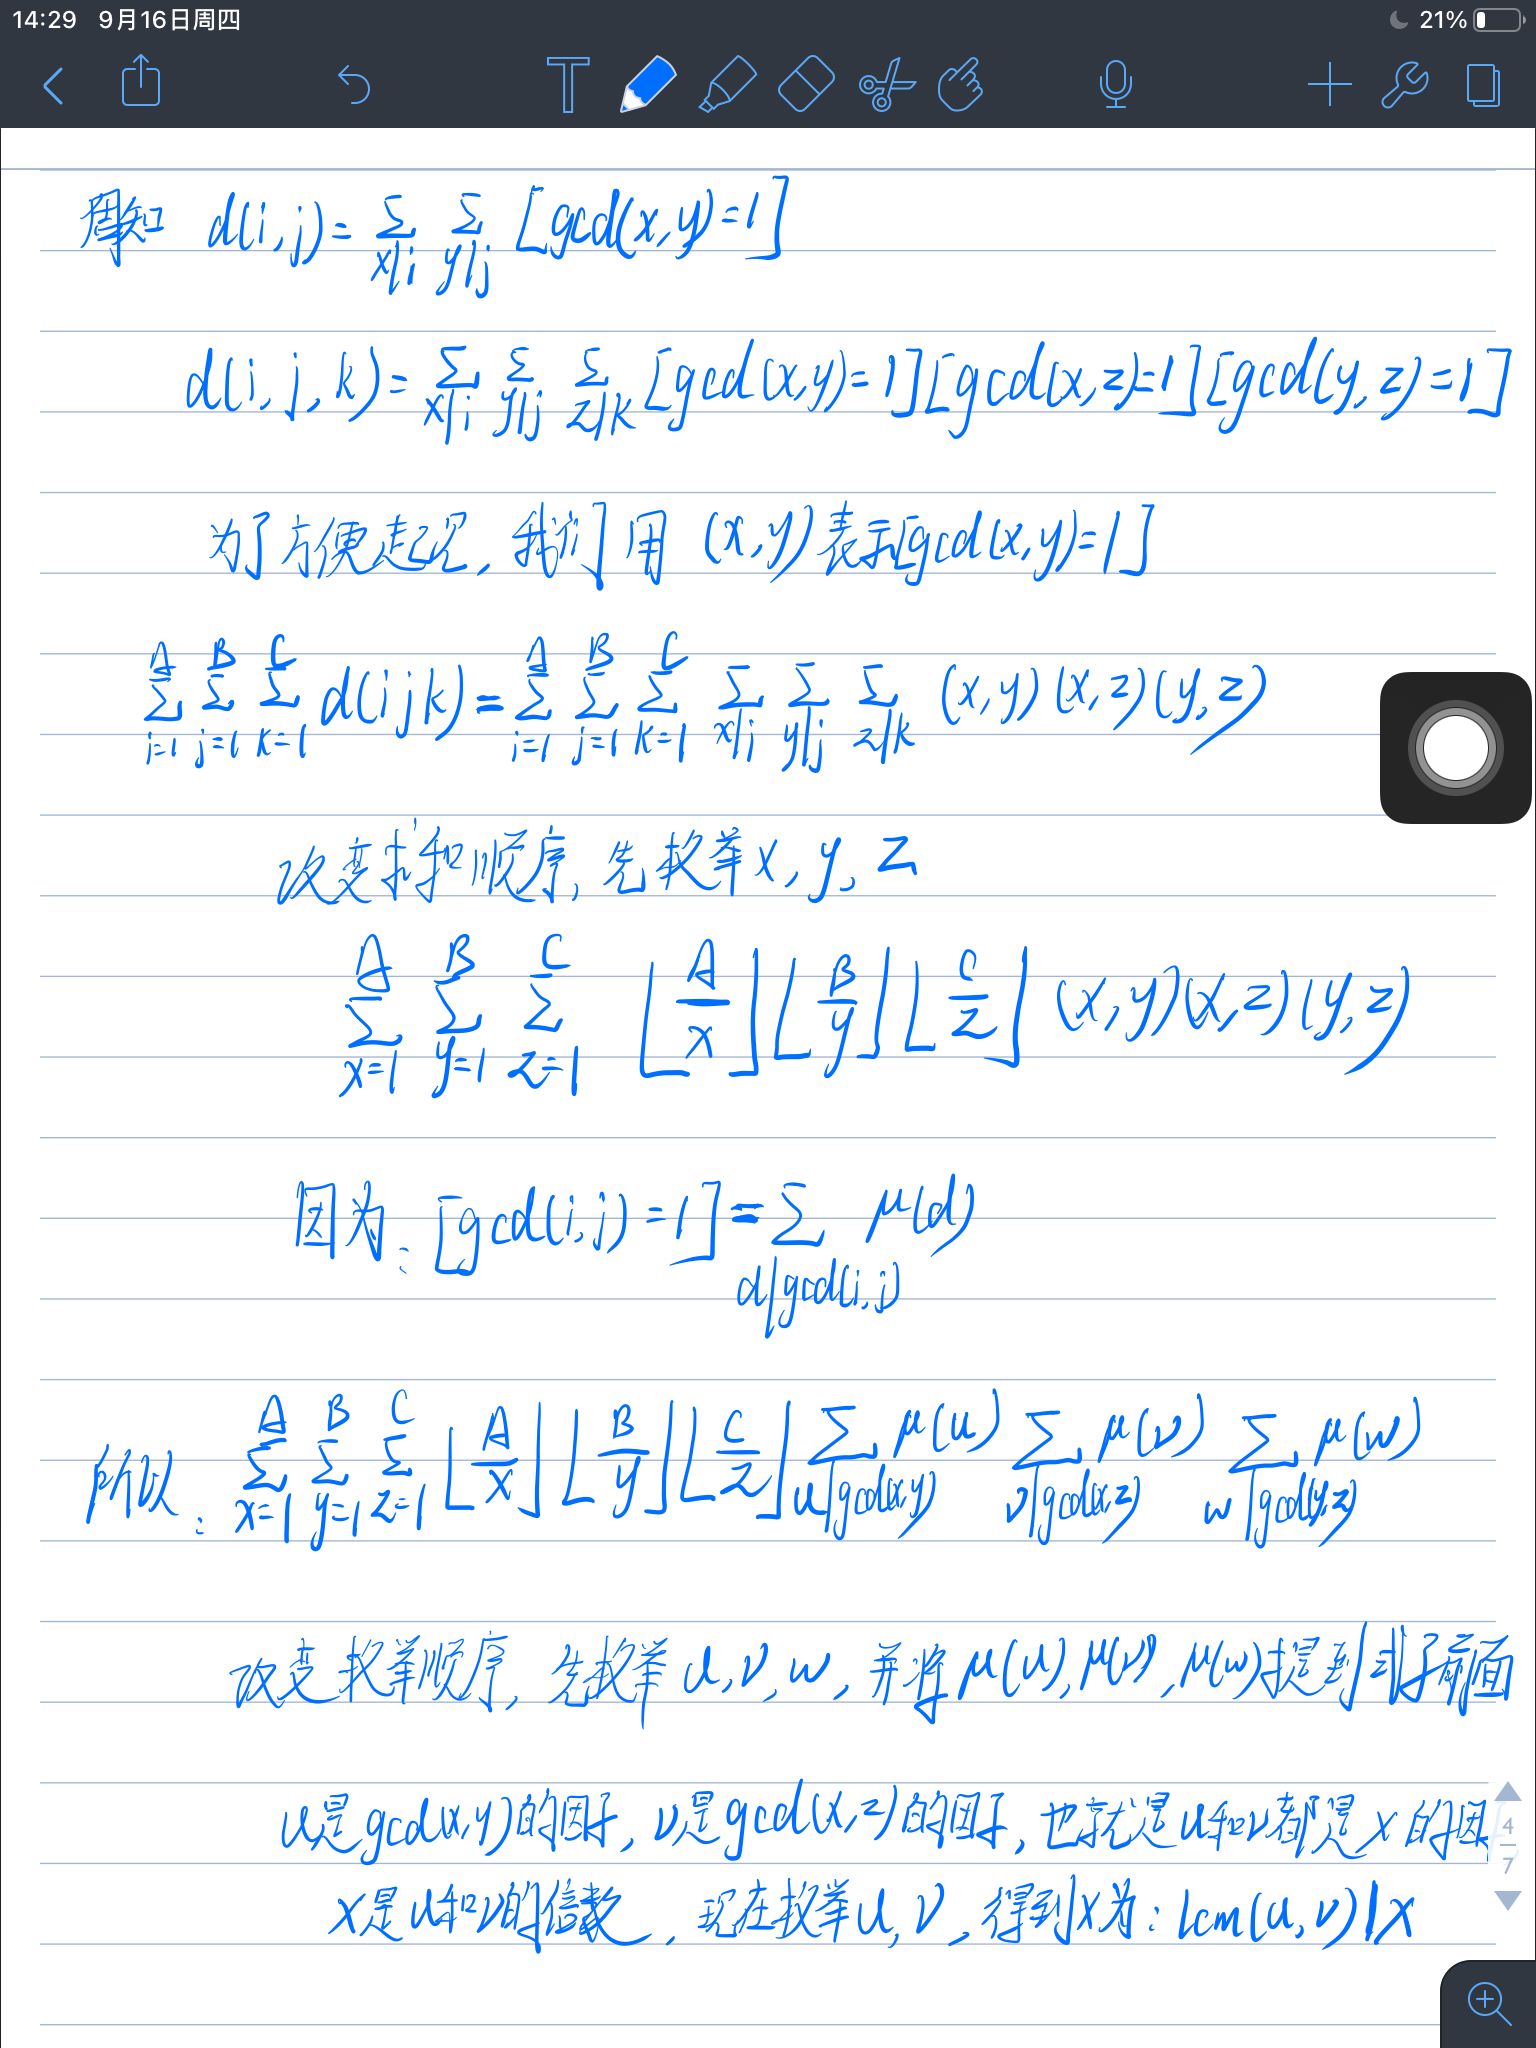 14:29 9月16日周四 21%
周知 d(i,j)=∑_{x|i} ∑_{y|j} [gcd(x,y)=1]
d(i,j,k)=∑_{x|i} ∑_{y|j} ∑_{z|k} [gcd(x,y)=1][gcd(x,z)=1][gcd(y,z)=1]
为了方便起见,我们用 (x,y)表示[gcd(x,y)=1]
∑_{i=1}^{A} ∑_{j=1}^{B} ∑_{k=1}^{C} d(ijk)=∑_{i=1}^{A} ∑_{j=1}^{B} ∑_{k=1}^{C} ∑_{x|i} ∑_{y|j} ∑_{z|k} (x,y)(x,z)(y,z)
改变求和顺序,先枚举x,y,z
∑_{x=1}^{A} ∑_{y=1}^{B} ∑_{z=1}^{C} ⌊A/x⌋⌊B/y⌋⌊C/z⌋ (x,y)(x,z)(y,z)
因为:[gcd(i,j)=1]=∑_{d|gcd(i,j)} μ(d)
所以:∑_{x=1}^{A} ∑_{y=1}^{B} ∑_{z=1}^{C} ⌊A/x⌋⌊B/y⌋⌊C/z⌋ ∑_{u|gcd(x,y)} μ(u) ∑_{v|gcd(x,z)} μ(v) ∑_{w|gcd(y,z)} μ(w)
改变枚举顺序,先枚举u,v,w,并将μ(u),μ(v),μ(w)提到式子前面
u是gcd(x,y)的因子,v是gcd(x,z)的因子,也就是u和v都是x的因
x是u和v的倍数,现在枚举u,v,得到x为:lcm(u,v)|x
4
7